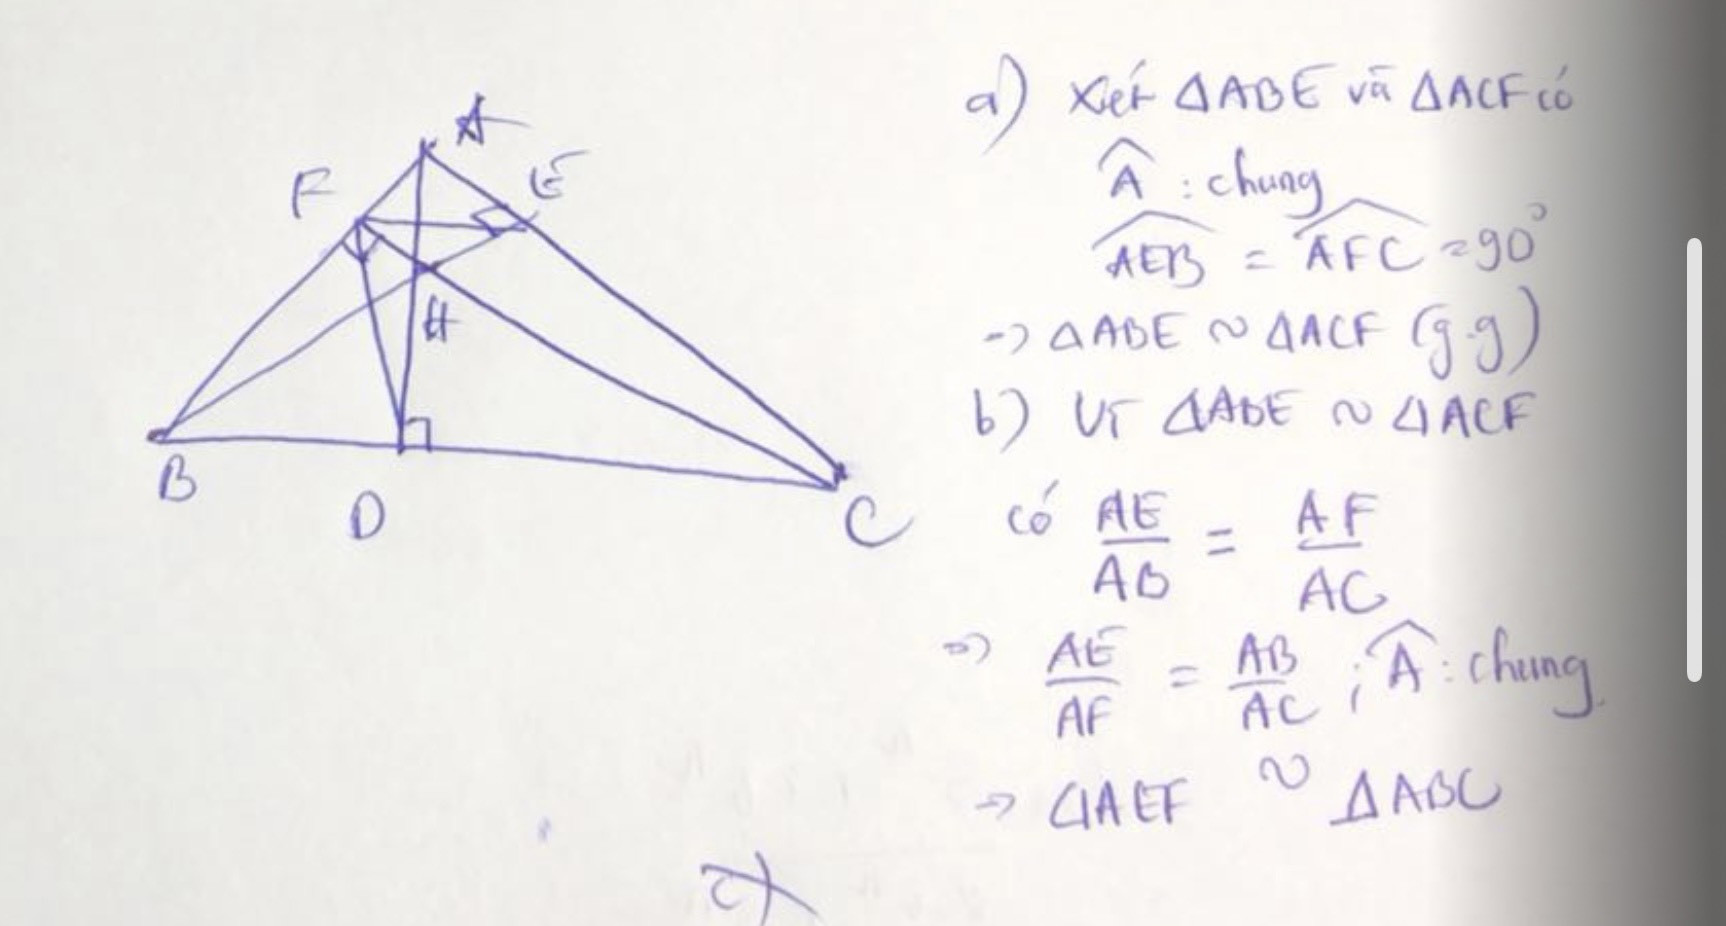 A
F
E
H
B
D
C
a) Xét ΔABE và ΔACF có
Â : chung
AEB = AFC = 90°
-> ΔABE ~ ΔACF (g.g)
b) Vì ΔABE ~ ΔACF
có AE/AB = AF/AC
=> AE/AF = AB/AC ; Â : chung
-> ΔAEF ~ ΔABC
c)